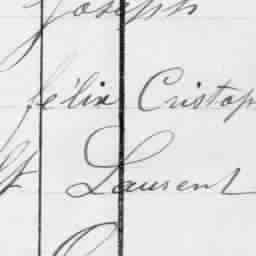 Joseph
félix Cristop
Laurent